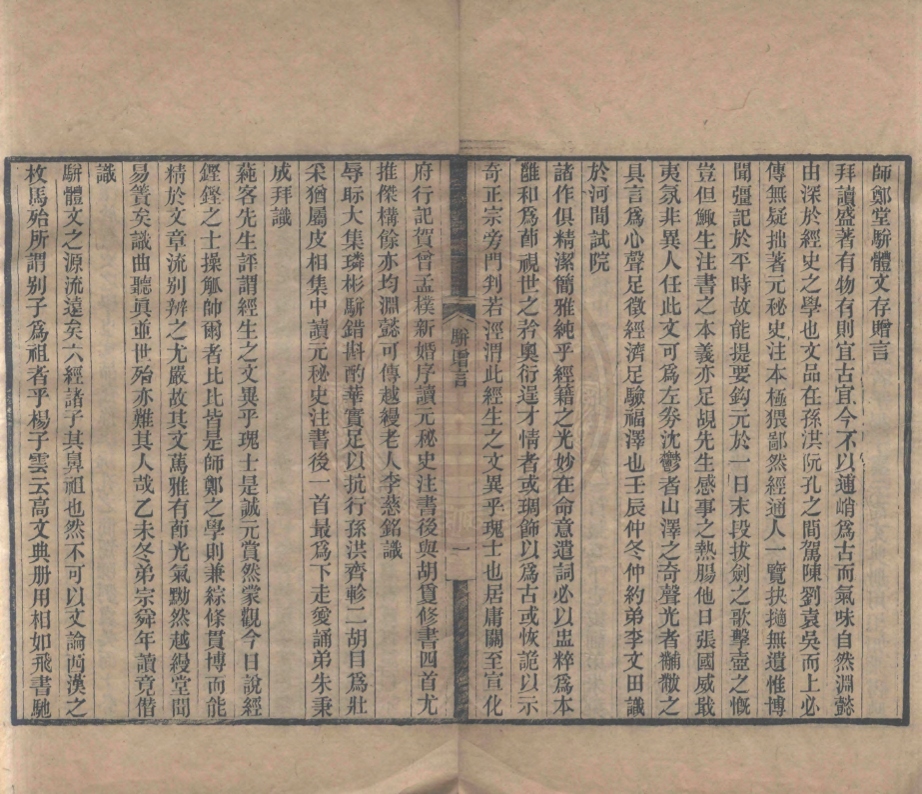 師鄭堂駢體文存贈言
拜讀盛著有物有則宜古宜今不以逋峭爲古而氣味自然淵懿
由深於經史之學也文品在孫洪阮孔之間駕陳劉袁吳而上必
傳無疑拙著元秘史注本極猥鄙然經通人一覽抉擿無遺惟博
聞彊記於平時故能提要鈎元於一日末段拔劍之歌擊壺之慨
豈但鯫生注書之本義亦足覘先生感事之熱腸他日張國威戢
夷氛非異人任此文可爲左劵沈鬱者山澤之奇聲光者黼黻之
具言爲心聲足徵經濟足驗福澤也壬辰仲冬仲約弟李文田識
於河間試院
諸作俱精潔簡雅純乎經籍之光妙在命意遣詞必以盅粹爲本
雝和爲莭視世之矜奧衍逞才情者或琱飾以爲古或恢詭以示
奇正宗旁門判若涇渭此經生之文異乎瑰士也居庸關至宣化
府行記賀曾孟樸新婚序讀元秘史注書後與胡賁修書四首尤
推傑構餘亦均淵懿可傳越縵老人李慈銘識
辱眎大集璘彬駢錯斟酌華實足以抗行孫洪齊軫二胡目爲壯
采猶屬皮相集中讀元秘史注書後一首最爲下走愛誦弟朱秉
成拜識
蒓客先生評謂經生之文異乎瑰士是誠元賞然棠觀今日說經
鏗鏗之士操觚帥爾者比比皆是師鄭之學則兼綜條貫博而能
精於文章流别辨之尤嚴故其文萬雅有莭光氣黝然越縵堂間
易簀矣識曲聽眞並世殆亦難其人哉乙未冬弟宗舜年讀竟偕
識
駢體文之源流遠矣六經諸子其鼻祖也然不可以文論兩漢之
枚馬殆所謂别子爲祖者乎楊子雲云高文典册用相如飛書馳
駢贈言
一